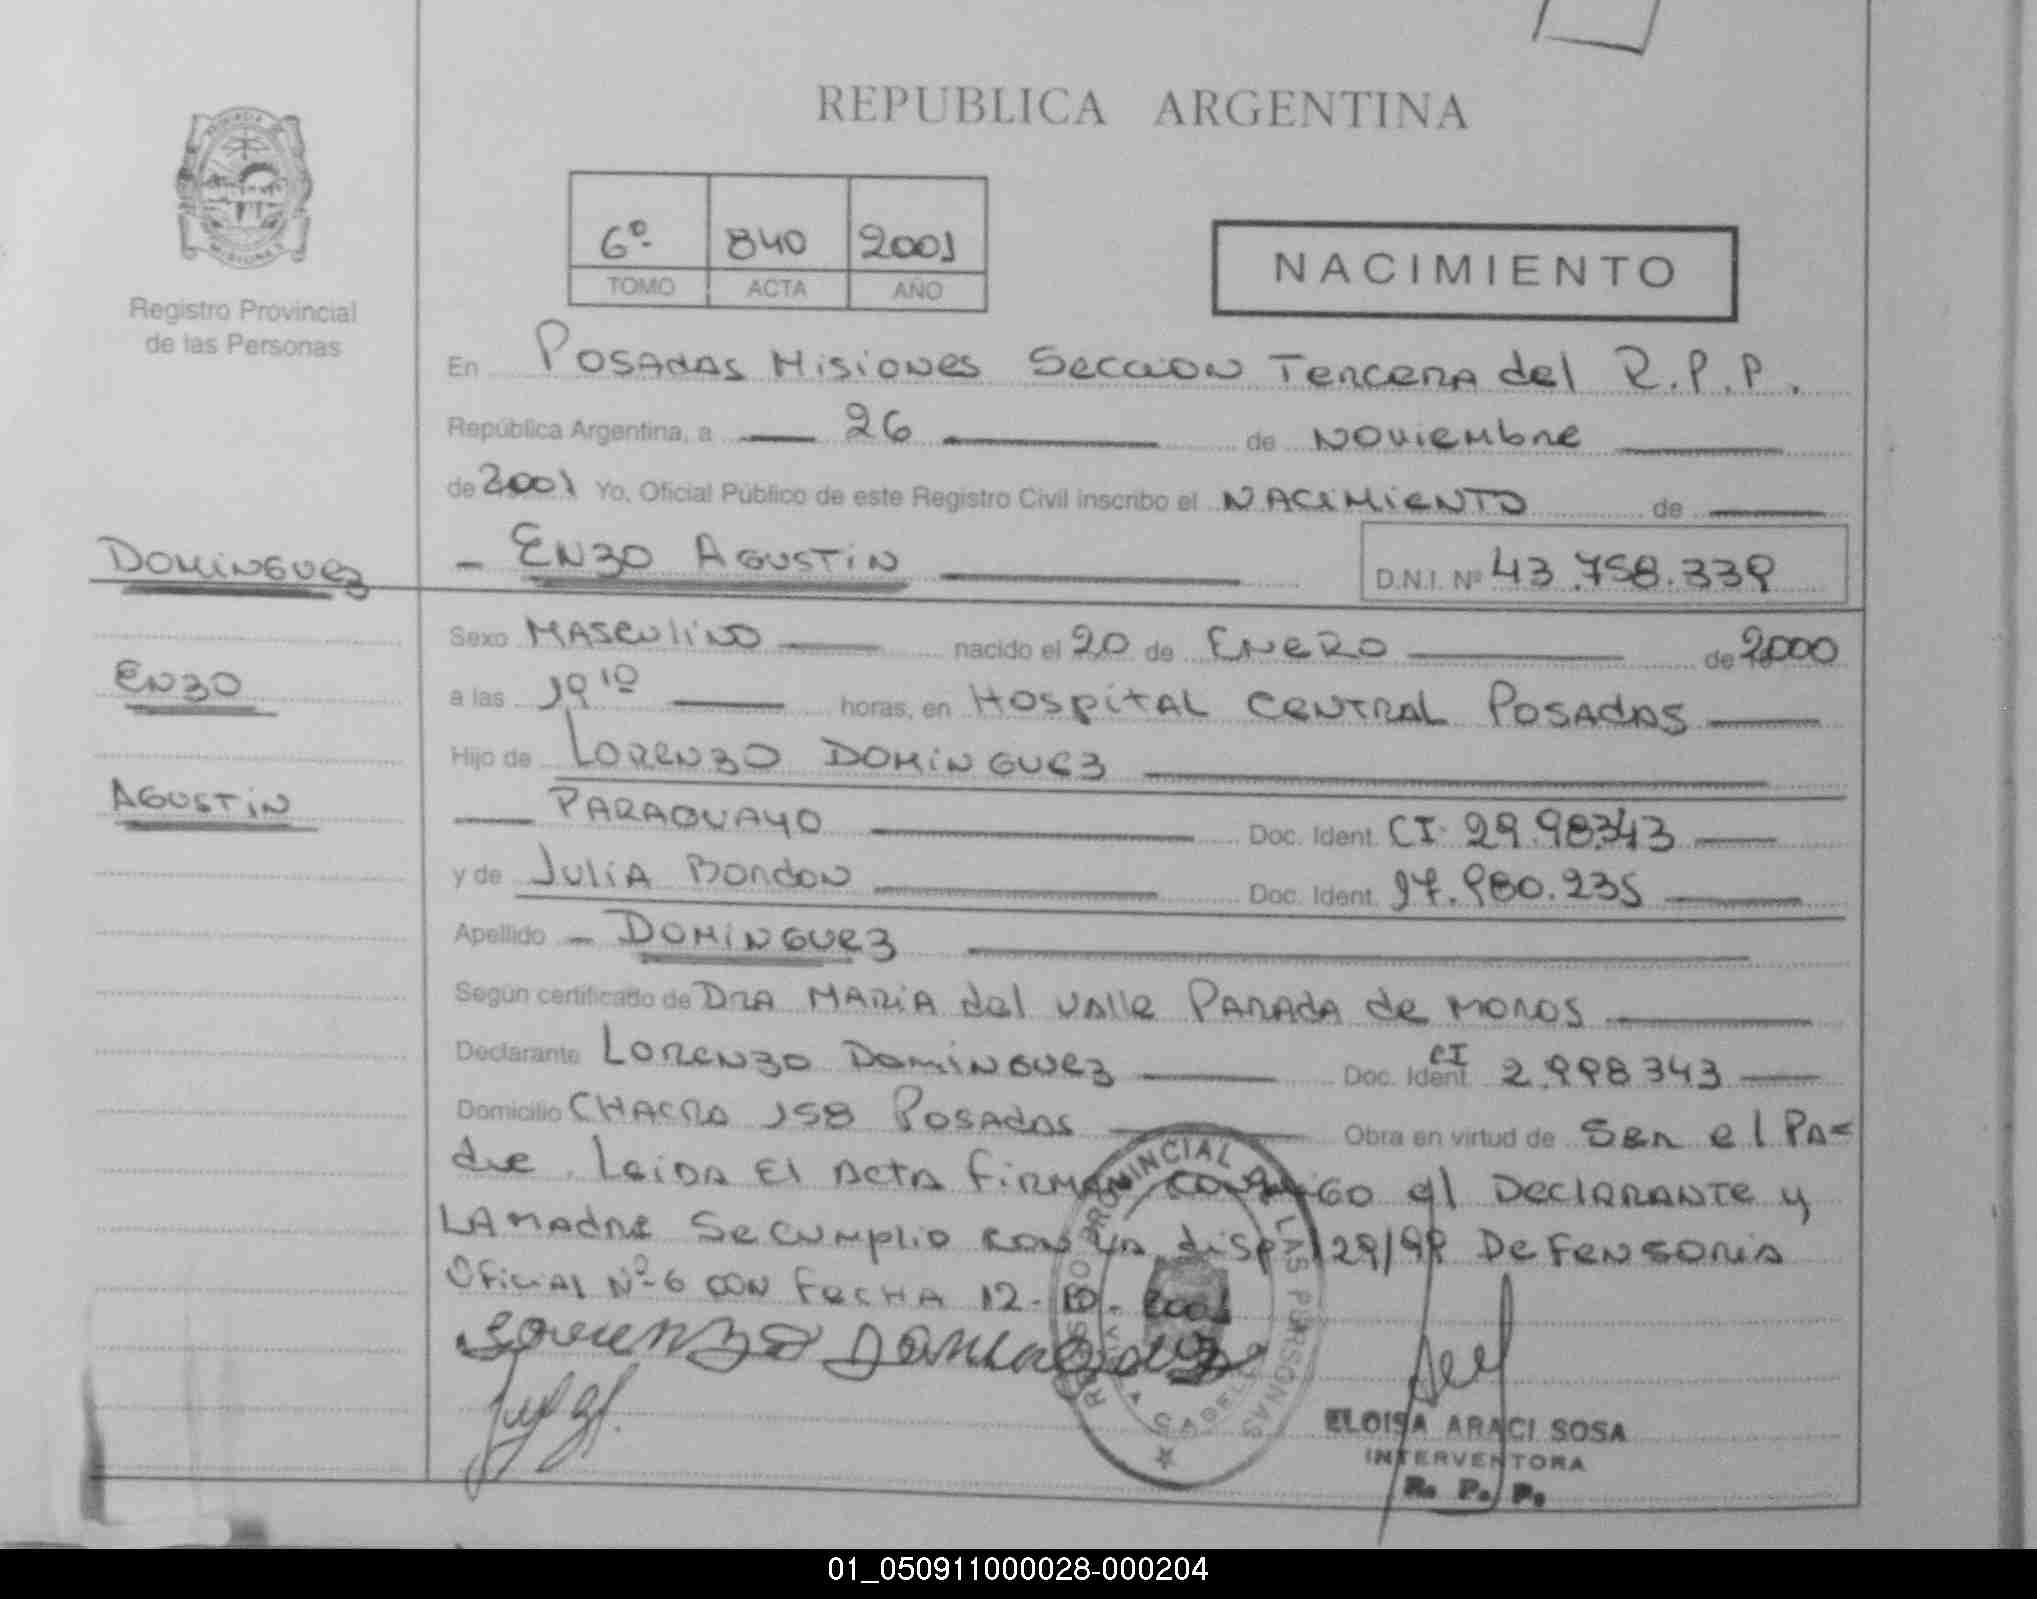 REPUBLICA ARGENTINA
PROVINCIA
MISIONES
Registro Provincial
de las Personas
6º 840 2001
TOMO ACTA AÑO
NACIMIENTO
En Posadas Misiones Seccion Tercera del R.P.P.
República Argentina, a 26 de Noviembre
de 2001 Yo, Oficial Público de este Registro Civil inscribo el NACIMIENTO de
DOMINGUEZ
- ENZO AGUSTIN D.N.I. Nº 43.758.339
Sexo MASCULINO nacido el 20 de ENERO de 2000
ENZO
a las 19 10 horas, en HOSPITAL CENTRAL POSADAS
Hijo de LORENZO DOMINGUEZ
AGUSTIN
PARAGUAYO Doc. Ident. CI. 29.98343
y de Julia Bordon Doc. Ident. 97.980.235
Apellido - DOMINGUEZ
Según certificado de DRA MARIA del VAlle PARADA de MOROS
Declarante LORENZO DOMINGUEZ Doc. Ident. CI 2.998343
Domicilio CHACRA 158 POSADAS Obra en virtud de Ser el Pa=
dre. Leida El Acta Firman conmigo el Declarante y
LA Madre Se cumplio con la disp 29/99 Defensoria
Oficial Nº 6 con fecha 12-10-2001
Lorenzo Dominguez
REGISTRO PROVINCIAL DE LAS PERSONAS
ELOISA ARACI SOSA
INTERVENTORA
R. P. P.
01_050911000028-000204